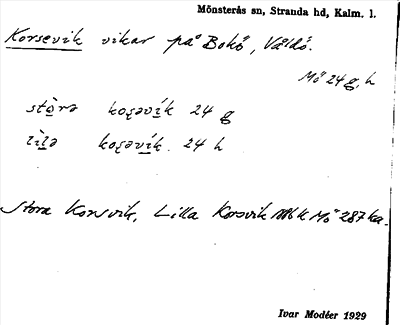 Mönsterås sn, Stranda hd, Kalm. l.
Korsevik vikar på Bokö, Våldö.
Mö 24 g, h
stò̱rə koʂəví̱k 24 g
lìlə koʂəví̱k. 24 h
Stora Korsvik, Lilla Korsvik k Mö 287 ka.
Ivar Modéer 1929